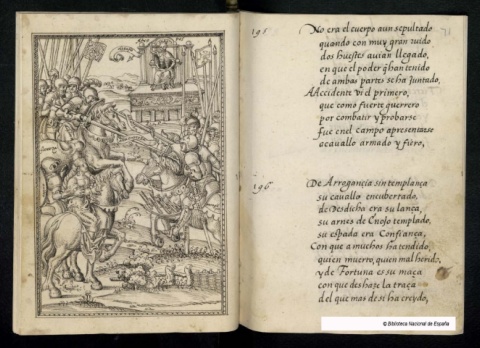 195
No era el cuerpo aun sepultado
quando con muy gran ruido
dos huestes auian llegado,
en que el poder q̃ han tenido
de ambas partes se ha juntado,
A Accidente vi el primero,
que como fuerte guerrero
por combatir y probarse
fue en el campo a presentarse
a cauallo armado y fiero,
196
De Arrogancia sin templança
su cauallo encubertado,
de Desdicha era su lança,
su arnes de Enojo templado,
su espada era Confiança,
Con que a muchos ha tendido,
quien muerto, quien mal herido,
y de Fortuna es su maça
con que deshaze la traça
del que mas de si ha creydo,
© Biblioteca Nacional de España